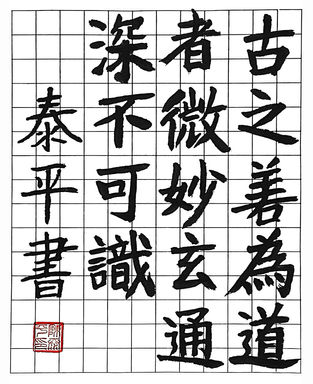 古之善為道
者微妙玄通
深不可識
泰平書